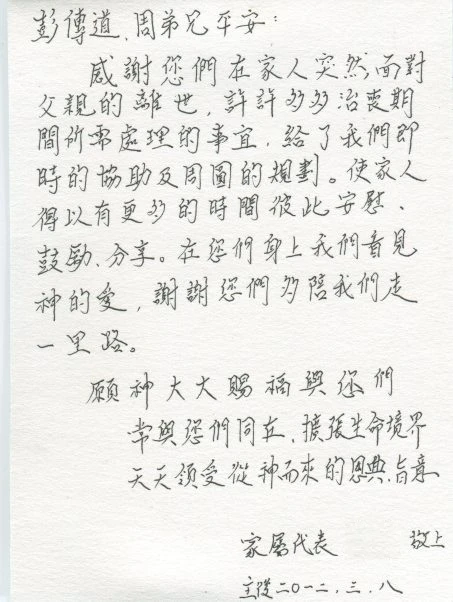 彭傳道、周弟兄平安：
感謝您們在家人突然面對
父親的離世，許許多多治喪期
間所需處理的事宜，給了我們即
時的協助及周圓的規劃。使家人
得以有更多的時間彼此安慰、
鼓勁、分享。在您們身上我們看見
神的愛，謝謝您們多陪我們走
一里路。
願神大大賜福與您們
常與您們同在、擴張生命境界
天天領受從神而來的恩典、旨意
家屬代表 敬上
主後二〇一二、三、八